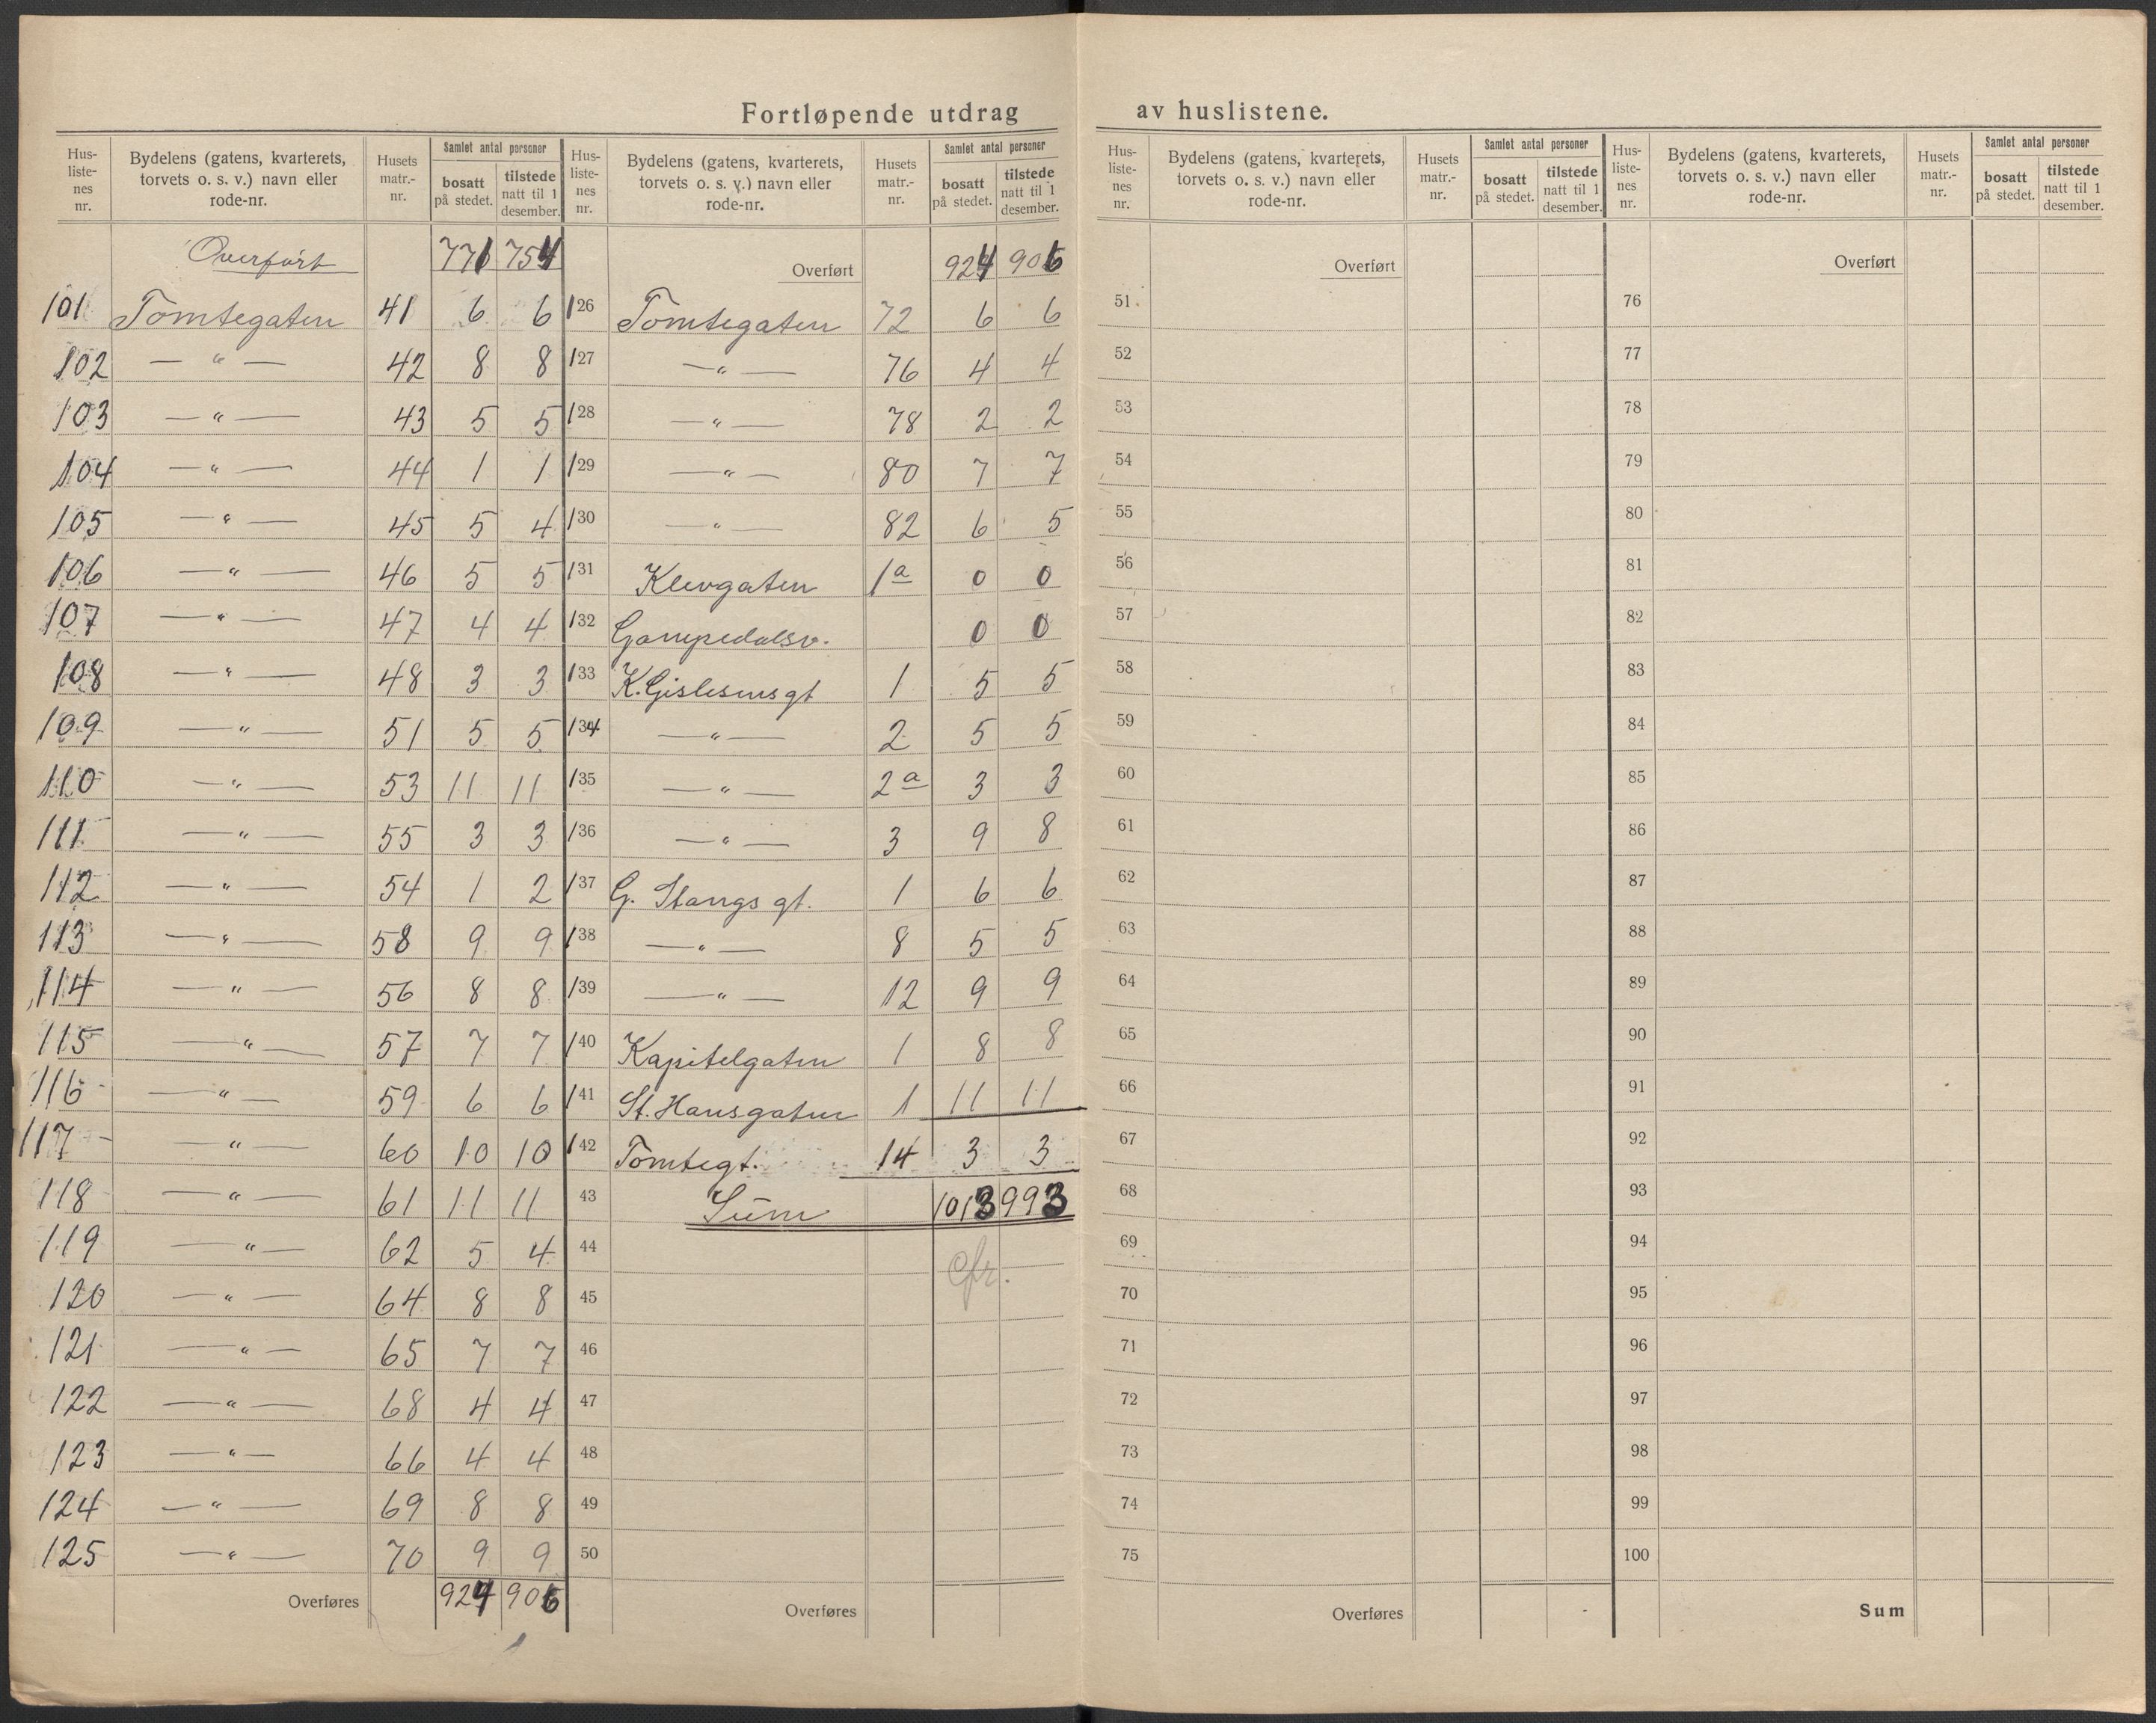 Fortløpende utdrag av huslistene.
Hus-listenes nr. | Bydelens (gatens, kvarterets, torvets o. s. v.) navn eller rode-nr. | Husets matr.-nr. | Samlet antal personer bosatt på stedet. | tilstede natt til 1 desember.
Overført 771 754
101 Tomtegaten 41 6 6
102 — " — 42 8 8
103 — " — 43 5 5
104 — " — 44 1 1
105 — " — 45 5 4
106 — " — 46 5 5
107 — " — 47 4 4
108 — " — 48 3 3
109 — " — 51 5 5
110 — " — 53 11 11
111 — " — 55 3 3
112 — " — 54 1 2
113 — " — 58 9 9
114 — " — 56 8 8
115 — " — 57 7 7
116 — " — 59 6 6
117 — " — 60 10 10
118 — " — 61 11 11
119 — " — 62 5 4
120 — " — 64 8 8
121 — " — 65 7 7
122 — " — 68 4 4
123 — " — 66 4 4
124 — " — 69 8 8
125 — " — 70 9 9
Overføres 924 906
Hus-listenes nr. | Bydelens (gatens, kvarterets, torvets o. s. v.) navn eller rode-nr. | Husets matr.-nr. | Samlet antal personer bosatt på stedet. | tilstede natt til 1 desember.
Overført 924 906
126 Tomtegaten 72 6 6
127 — " — 76 4 4
128 — " — 78 2 2
129 — " — 80 7 7
130 — " — 82 6 5
131 Klevgaten 1a 0 0
132 Gampedalsv. 0 0
133 K. Gislesens gt 1 5 5
134 — " — 2 5 5
135 — " — 2a 3 3
136 — " — 3 9 8
137 G. Stangs gt. 1 6 6
138 — " — 8 5 5
139 — " — 12 9 9
140 Kapitelgaten 1 8 8
141 St. Hansgaten 1 11 11
142 Tomtegt. 14 3 3
43 Sum 1013 993
44 cfr.
45
46
47
48
49
50
Overføres
Hus-listenes nr. | Bydelens (gatens, kvarterets, torvets o. s. v.) navn eller rode-nr. | Husets matr.-nr. | Samlet antal personer bosatt på stedet. | tilstede natt til 1 desember.
Overført
51
52
53
54
55
56
57
58
59
60
61
62
63
64
65
66
67
68
69
70
71
72
73
74
75
Overføres
Hus-listenes nr. | Bydelens (gatens, kvarterets, torvets o. s. v.) navn eller rode-nr. | Husets matr.-nr. | Samlet antal personer bosatt på stedet. | tilstede natt til 1 desember.
Overført
76
77
78
79
80
81
82
83
84
85
86
87
88
89
90
91
92
93
94
95
96
97
98
99
100
Sum